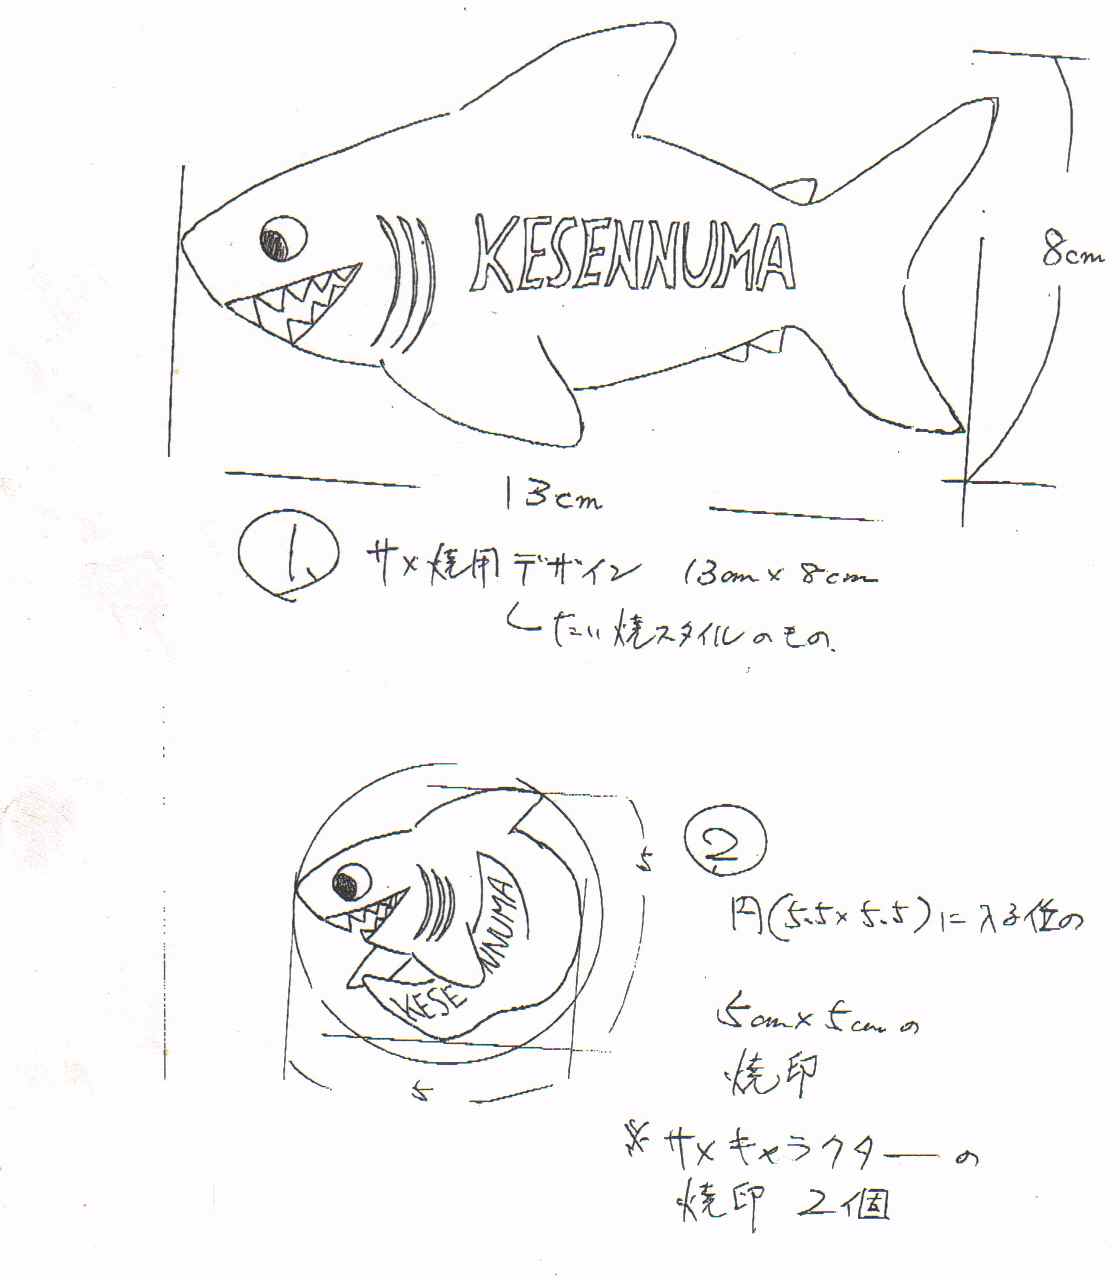 KESENNUMA
8cm
13cm
1、サメ焼用デザイン 13cm×8cm
たい焼スタイルのもの、
5
2
円(5.5×5.5)に入る位の
KESENNUMA
5cm×5cmの
焼印
5
※サメキャラクターの
焼印 2個